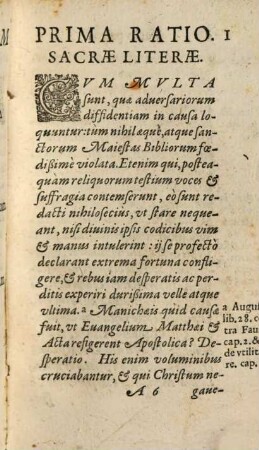 M PRIMA RATIO. 1
SACRÆ LITERÆ.
CVM MVLTA
sunt, quæ adversariorum
diffidentiam in causa lo-
quuntur: tum nihil æquè, atque san-
ctorum Maiestas Bibliorum fœ-
dißimè violata. Etenim qui, postea-
quam reliquorum testium voces &
suffragia contemserunt, eò sunt re-
dacti nihilosecius, vt stare neque-
ant, nisi divinis ipsis codicibus vim
& manus intulerint: ij se profectò
declarant extrema fortuna confli-
gere, & rebus iam desperatis ac per-
ditis experiri durißima velle atque
vltima. a Manichæis quid causæ
fuit, vt Euangelium Matthæi &
Acta refigerent Apostolica? De-
speratio. His enim voluminibus
cruciabantur, & qui Christum ne-
A 6 gaue-
a Augu
lib. 28. co
tra Fau
cap. 2. &
de vtilit
re. cap.